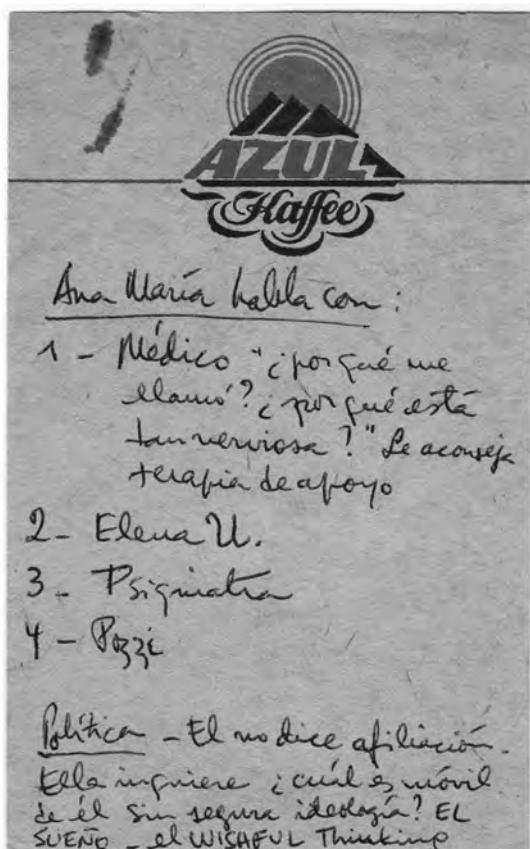 AZUL
Kaffee
Ana María habla con:
1 - Médico "¿por qué me
llamó? ¿por qué está
tan nerviosa?" Le aconseja
terapia de apoyo
2 - Elena U.
3 - Psiquiatra
4 - Pozzi
Política - El no dice afiliación.
Ella inquiere ¿cuál es móvil
de él sin segura ideología? EL
SUEÑO - el WISHFUL Thinking